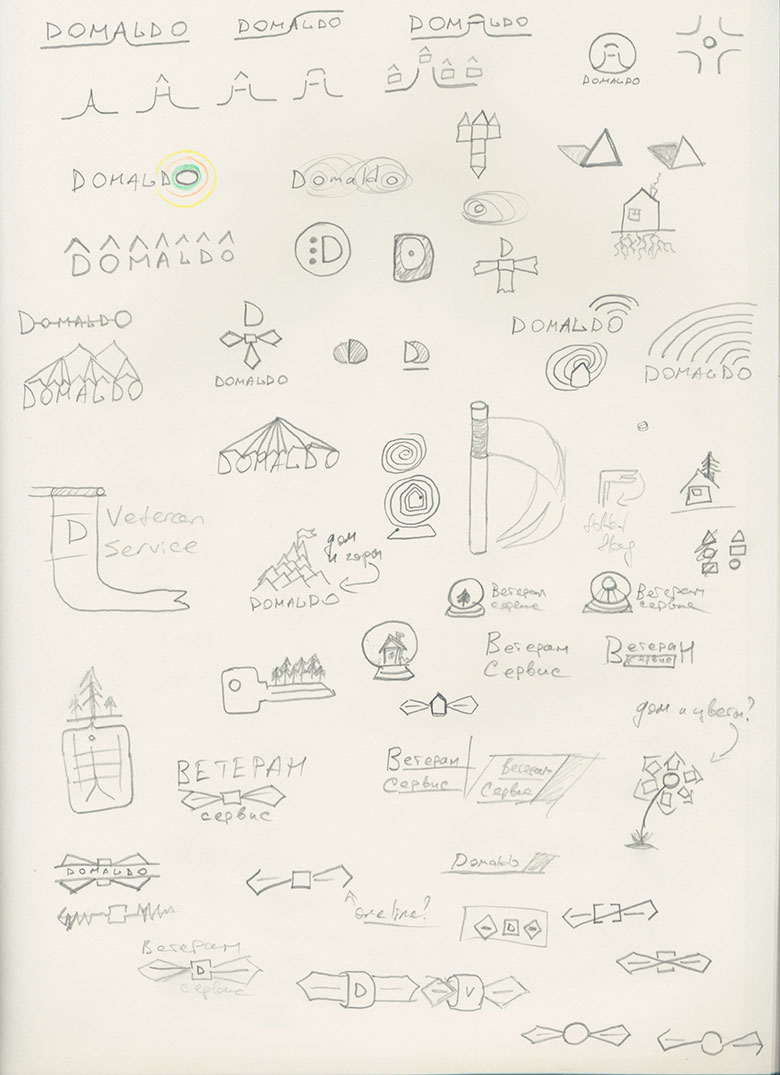 DOMALDO
DOMALDO
DOMALDO
A
DOMALDO
A
A
A
A
DOMALDO
Domaldo
DOMALDO
:D
D
D
DOMALDO
D
DOMALDO
D
DOMALDO
DOMALDO
DOMALDO
DOMALDO
D
Veteran
Service
дом
и горы
DOMALDO
Ветеран
сервис
Ветеран
сервис
Ветеран
Сервис
Ветеран
сервис
дом и цветы?
ВЕТЕРАН
сервис
Ветеран
Сервис
Ветеран
Сервис
DOMALDO
one line?
Domaldo
D
Ветеран
D
сервис
D
V